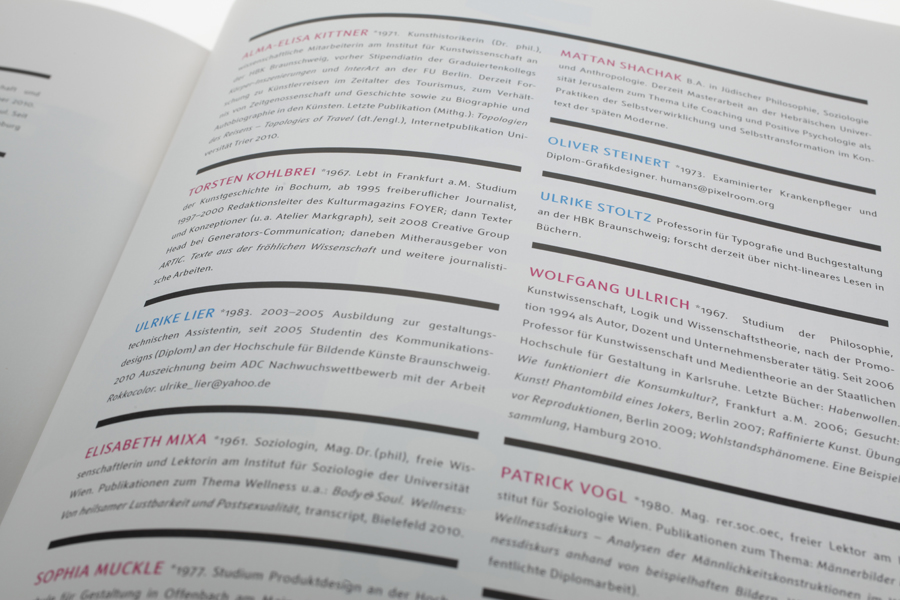 haft und
er 2010.
l. Seit
burg
ALMA-ELISA KITTNER *1971. Kunsthistorikerin (Dr. phil.),
wissenschaftliche Mitarbeiterin am Institut für Kunstwissenschaft an
der HBK Braunschweig, vorher Stipendiatin der Graduiertenkollegs
Körper-Inszenierungen und InterArt an der FU Berlin. Derzeit For-
schung zu Künstlerreisen im Zeitalter des Tourismus, zum Verhält-
nis von Zeitgenossenschaft und Geschichte sowie zu Biographie und
Autobiographie in den Künsten. Letzte Publikation (Mithg.): Topologien
des Reisens – Topologies of Travel (dt./engl.), Internetpublikation Uni-
versität Trier 2010.
TORSTEN KOHLBREI *1967. Lebt in Frankfurt a. M. Studium
der Kunstgeschichte in Bochum, ab 1995 freiberuflicher Journalist,
1997–2000 Redaktionsleiter des Kulturmagazins FOYER; dann Texter
und Konzeptioner (u. a. Atelier Markgraph), seit 2008 Creative Group
Head bei Generators-Communication; daneben Mitherausgeber von
ARTIC. Texte aus der fröhlichen Wissenschaft und weitere journalisti-
sche Arbeiten.
ULRIKE LIER *1983. 2003–2005 Ausbildung zur gestaltungs-
technischen Assistentin, seit 2005 Studentin des Kommunikations-
designs (Diplom) an der Hochschule für Bildende Künste Braunschweig.
2010 Auszeichnung beim ADC Nachwuchswettbewerb mit der Arbeit
Rokkocolor. ulrike_lier@yahoo.de
ELISABETH MIXA *1961. Soziologin, Mag. Dr. (phil), freie Wis-
senschaftlerin und Lektorin am Institut für Soziologie der Universität
Wien. Publikationen zum Thema Wellness u.a.: Body & Soul. Wellness:
Von heilsamer Lustbarkeit und Postsexualität, transcript, Bielefeld 2010.
SOPHIA MUCKLE *1977. Studium Produktdesign an der Hoch-
schule für Gestaltung in Offenbach am
MATTAN SHACHAK B.A. in Jüdischer Philosophie, Soziologie
und Anthropologie. Derzeit Masterarbeit an der Hebräischen Univer-
sität Jerusalem zum Thema Life Coaching und Positive Psychologie als
Praktiken der Selbstverwirklichung und Selbsttransformation im Kon-
text der späten Moderne.
OLIVER STEINERT *1973. Examinierter Krankenpfleger und
Diplom-Grafikdesigner. humans@pixelroom.org
ULRIKE STOLTZ Professorin für Typografie und Buchgestaltung
an der HBK Braunschweig; forscht derzeit über nicht-lineares Lesen in
Büchern.
WOLFGANG ULLRICH *1967. Studium der Philosophie,
Kunstwissenschaft, Logik und Wissenschaftstheorie, nach der Promo-
tion 1994 als Autor, Dozent und Unternehmensberater tätig. Seit 2006
Professor für Kunstwissenschaft und Medientheorie an der Staatlichen
Hochschule für Gestaltung in Karlsruhe. Letzte Bücher: Habenwollen.
Wie funktioniert die Konsumkultur?, Frankfurt a.M. 2006; Gesucht:
Kunst! Phantombild eines Jokers, Berlin 2007; Raffinierte Kunst. Übung
vor Reproduktionen, Berlin 2009; Wohlstandsphänomene. Eine Beispiel
sammlung, Hamburg 2010.
PATRICK VOGL *1980. Mag. rer.soc.oec, freier Lektor am
stitut für Soziologie Wien. Publikationen zum Thema: Männerbilder
Wellnessdiskurs – Analysen der Männlichkeitskonstruktionen im
nessdiskurs anhand von beispielhaften Bildern
fentlichte Diplomarbeit).